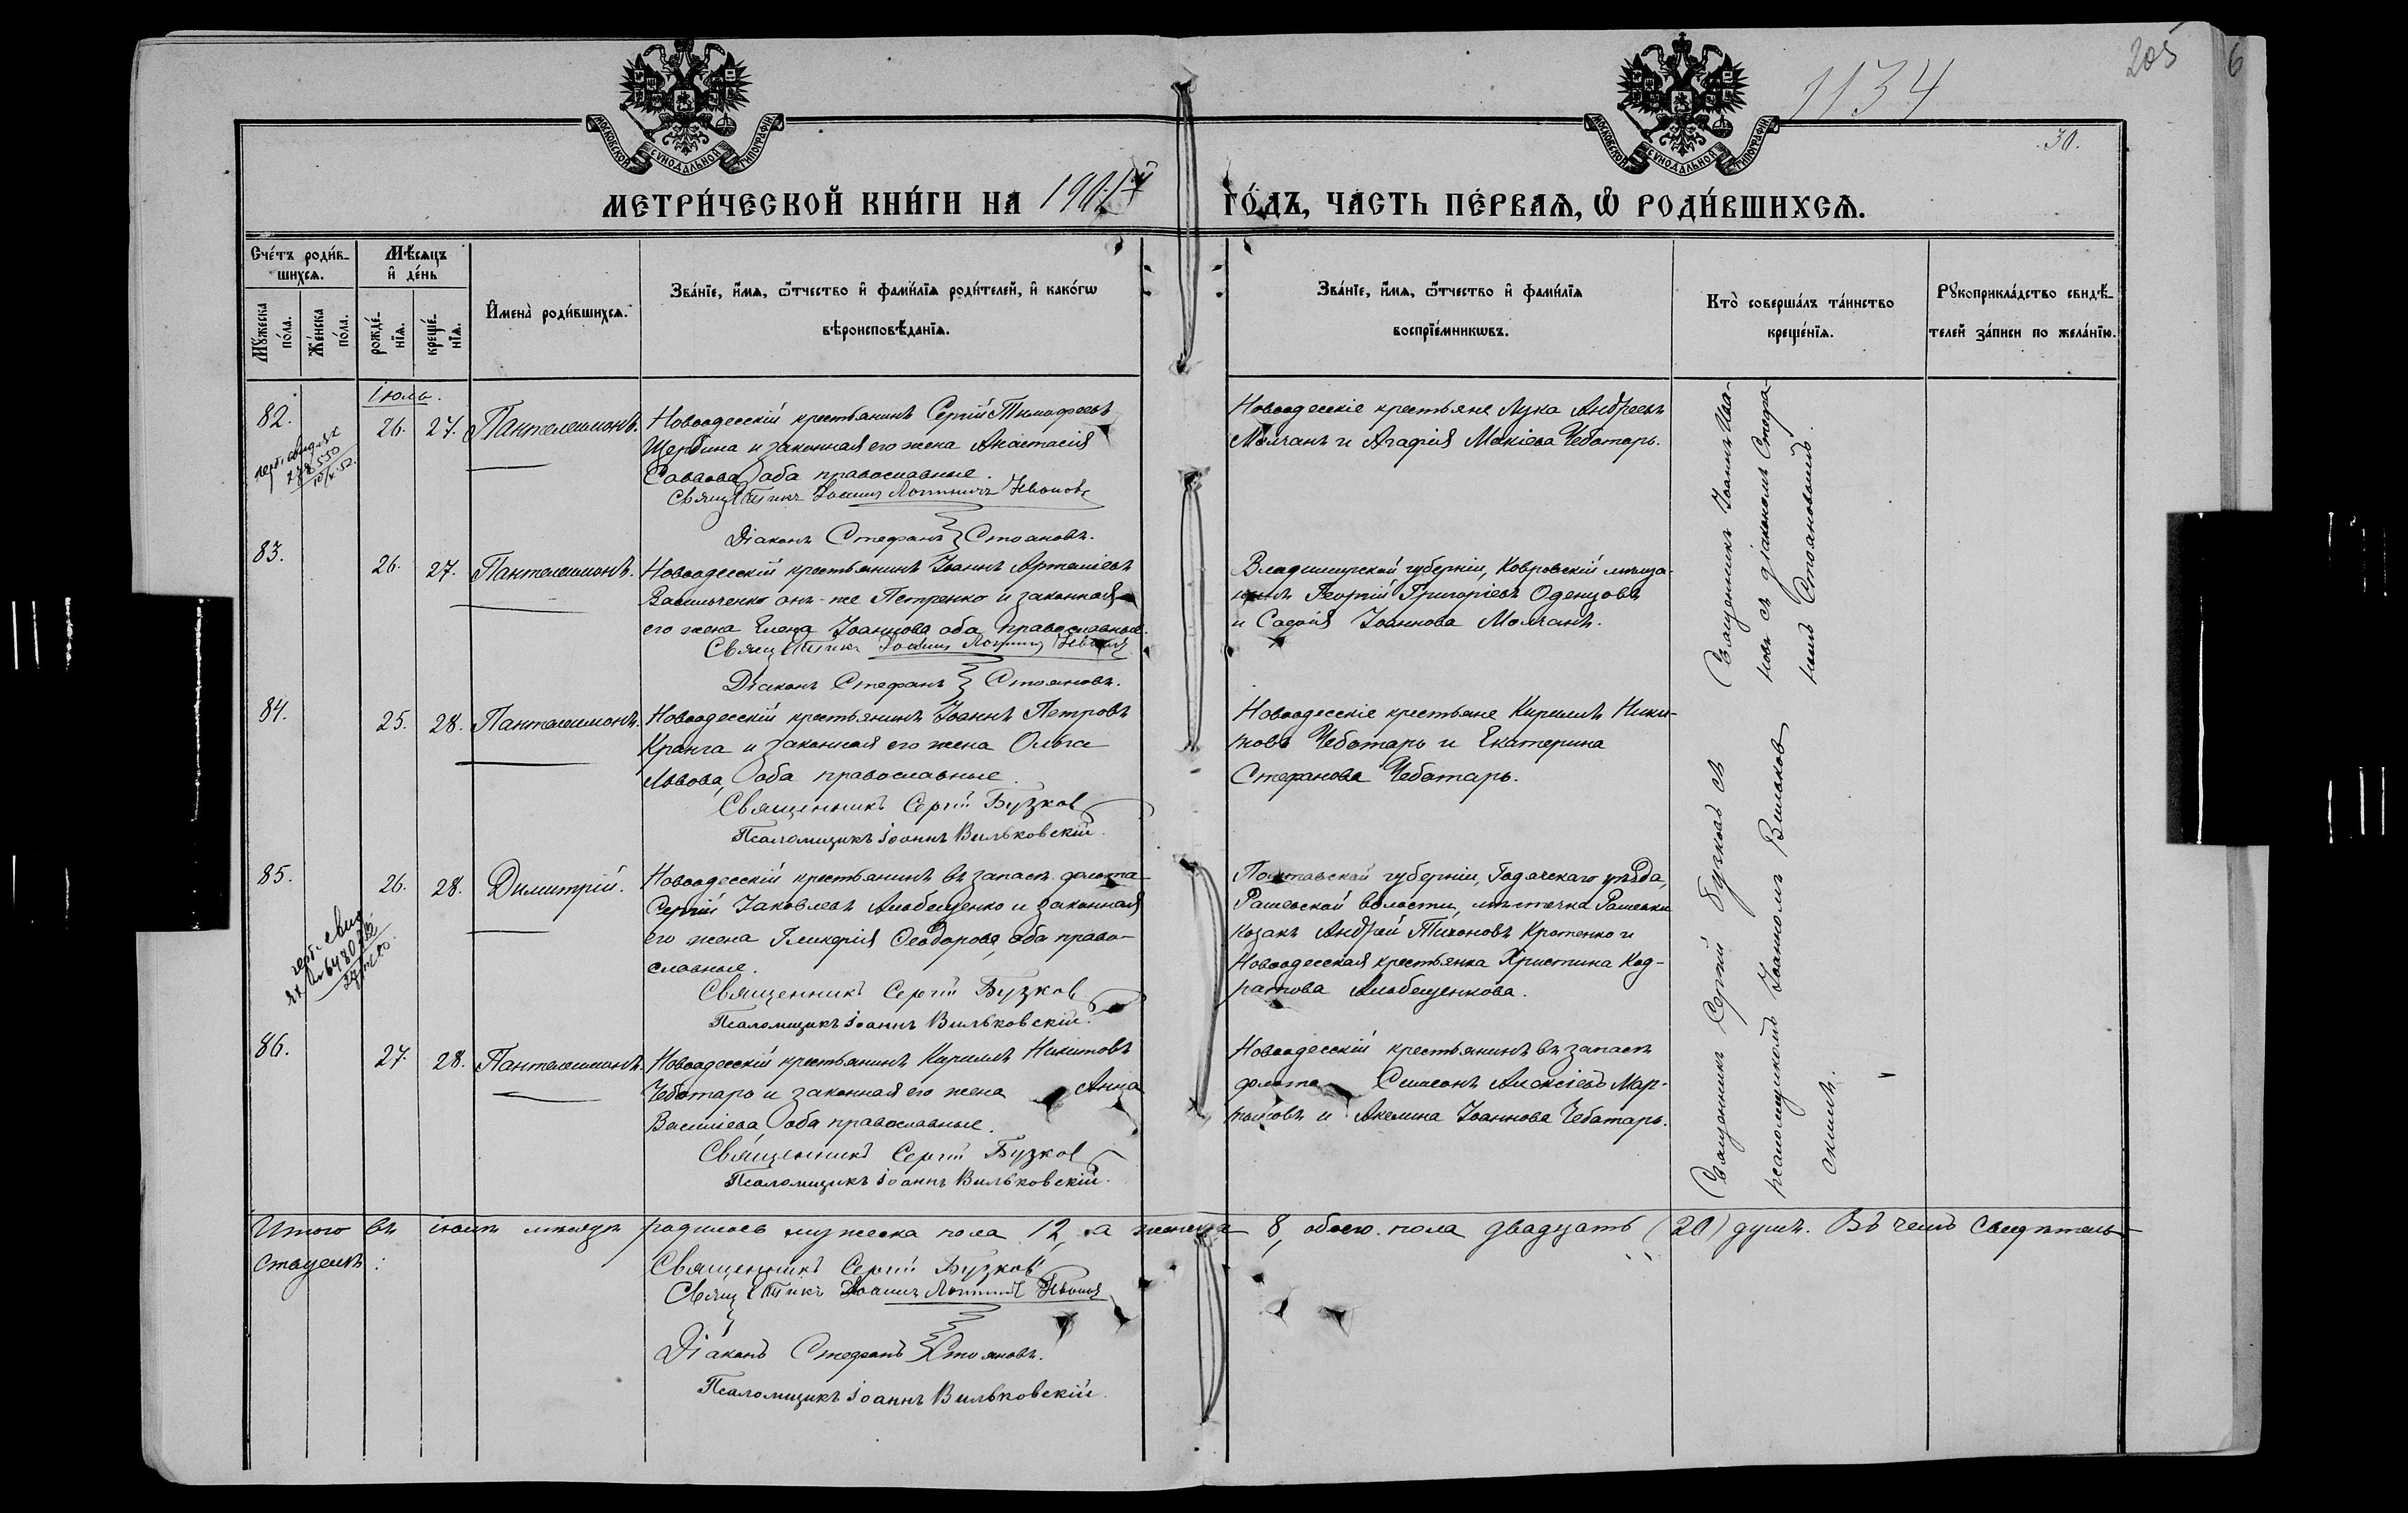 205
6
1134
30.
МОСКОВСКОЙ СѴНОДАЛЬНОЙ ТИПОГРАФІИ
МОСКОВСКОЙ СѴНОДАЛЬНОЙ ТИПОГРАФІИ
МЕТРИ́ЧЕСКОЙ КНИ́ГИ НА
ГО́ДЪ, ЧА́СТЬ ПЕ́РВАѦ, Ѡ РОДИ́ВШИХСѦ.
Сче́тъ роди́в-
шихсѧ.
Мѣсѧцъ
и҆ де́нь
Мꙋ́жеска
по́ла.
Же́нска
по́ла.
рожде́-
нїѧ.
креще́-
нїѧ.
И҆мена̀ роди́вшихсѧ.
Зва́нїе, и҆́мѧ, ѻ҆́тчество и҆ фами́лїѧ роди́телей, и҆ како́гѡ
вѣроисповѣ́данїѧ.
Зва́нїе, и҆́мѧ, ѻ҆́тчество и҆ фами́лїѧ
воспрїе́мникѡвъ.
Кто̀ соверша́лъ та́инство
креще́нїѧ.
Рꙋкоприкла́дство свидѣ́-
телей за́писи по жела́нїю.
Іюль.
82.
26. 27. Пантелеимонъ.
Новоодесскій крестьянинъ Сергій Тимофеевъ
Щербина и законная его жена Анастасія
Саввова, оба православные.
Діаконъ Стефанъ Стояновъ.
Новоодесскіе крестьяне Лука Андреевъ
Молчанъ и Агафія Мокіева Чеботарь.
Священникъ Іоаннъ Ива-
новъ съ діакономъ Стефа-
номъ Стояновымъ.
83.
26. 27. Пантелеимонъ.
Новоодесскій крестьянинъ Іоаннъ Артеміевъ
Васильченко онъ-же Петренко и законная
его жена Елена Іоаннова, оба православные.
Діаконъ Стефанъ Стояновъ.
Владимирской губерніи, Ковровскій мѣща-
нинъ Георгій Григоріевъ Оденцовъ
и Софія Іоаннова Молчанъ.
84.
25. 28. Пантелеимонъ.
Новоодесскій крестьянинъ Іоаннъ Петровъ
Кранга и законная его жена Ольга
Львова, оба православные.
Священникъ Сергій Бузков
Псаломщикъ Іоаннъ Вильковскій.
Новоодесскіе крестьяне Кириллъ Ники-
товъ Чеботарь и Екатерина
Стефанова Чеботарь.
Священникъ Сергій Бузковъ съ
псаломщикомъ Іоанномъ Вильков-
скимъ.
85.
26. 28. Димитрій.
Новоодесскій крестьянинъ въ запасѣ флота
Сергій Іаковлевъ Алабещенко и законная
его жена Гликерія Ѳеодорова, оба право-
славные.
Священникъ Сергій Бузков
Псаломщикъ Іоаннъ Вильковскій.
Полтавской губерніи, Гадячскаго уѣзда,
Рашевской волости, мѣстечка Рашевки
козакъ Андрей Тихоновъ Кротенко и
Новоодесская крестьянка Христина Код-
ратова Алабещенкова.
86.
27. 28. Пантелеимонъ.
Новоодесскій крестьянинъ Кириллъ Никитовъ
Чеботарь и законная его жена Анна
Василіева, оба православные.
Священникъ Сергій Бузков
Псаломщикъ Іоаннъ Вильковскій.
Новоодесскій крестьянинъ въ запасѣ
флота Симеонъ Алексіевъ Мар-
тыновъ и Акелина Іоаннова Чеботарь.
Итого въ іюлѣ мѣсяцѣ родилось мужеска пола 12, а женска 8, обоего пола двадцать (20) душъ. Въ чемъ свидѣтель-
ствуемъ:
Священникъ Сергій Бузков
Діаконъ Стефанъ Стояновъ.
Псаломщикъ Іоаннъ Вильковскій.